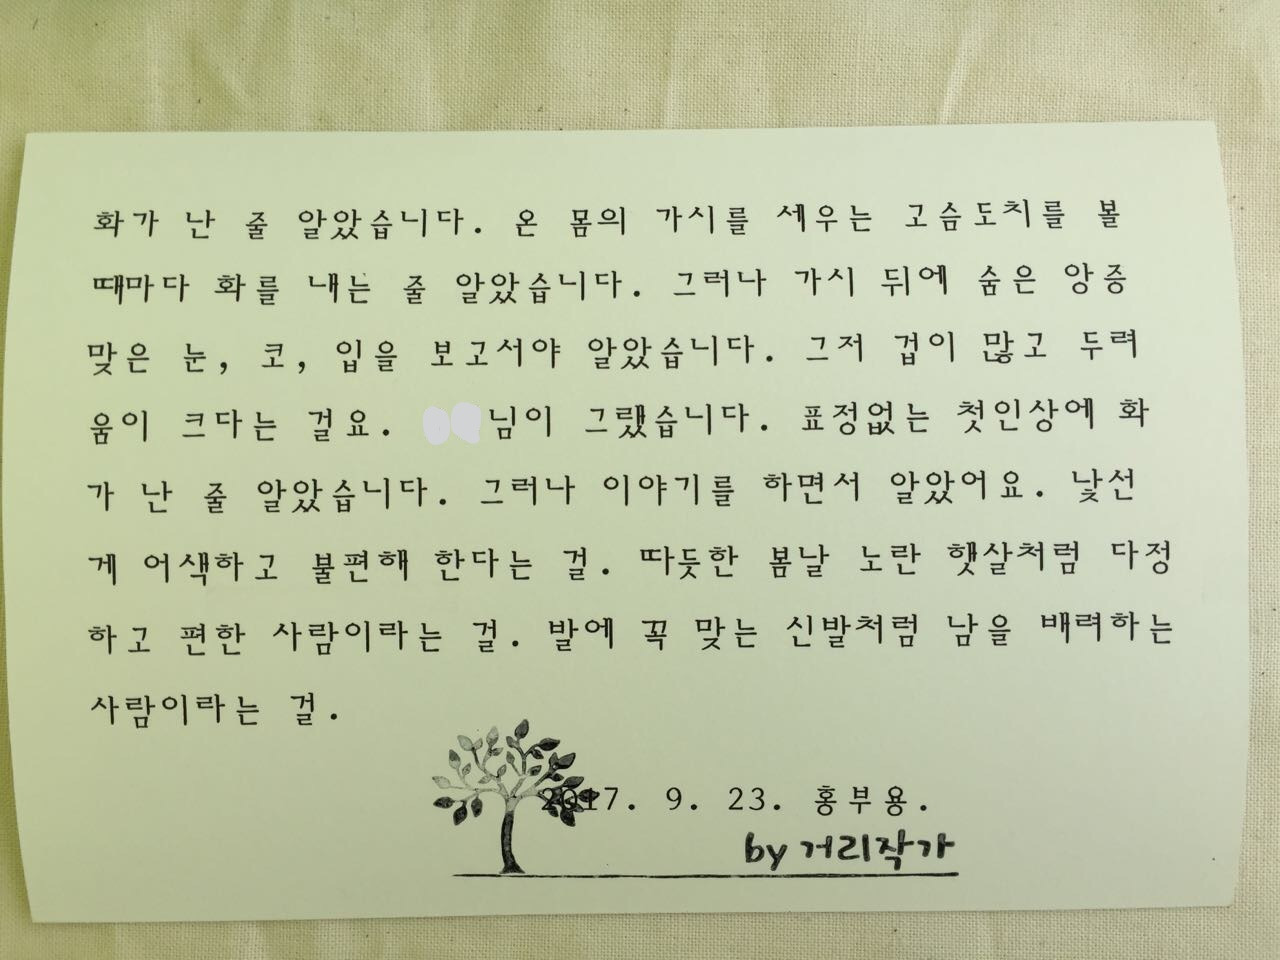 화가 난 줄 알았습니다. 온 몸의 가시를 세우는 고슴도치를 볼
때마다 화를 내는 줄 알았습니다. 그러나 가시 뒤에 숨은 앙증
맞은 눈, 코, 입을 보고서야 알았습니다. 그저 겁이 많고 두려
움이 크다는 걸요. 님이 그랬습니다. 표정없는 첫인상에 화
가 난 줄 알았습니다. 그러나 이야기를 하면서 알았어요. 낯선
게 어색하고 불편해 한다는 걸. 따듯한 봄날 노란 햇살처럼 다정
하고 편한 사람이라는 걸. 발에 꼭 맞는 신발처럼 남을 배려하는
사람이라는 걸.
2017. 9. 23. 홍부용.
by 거리작가